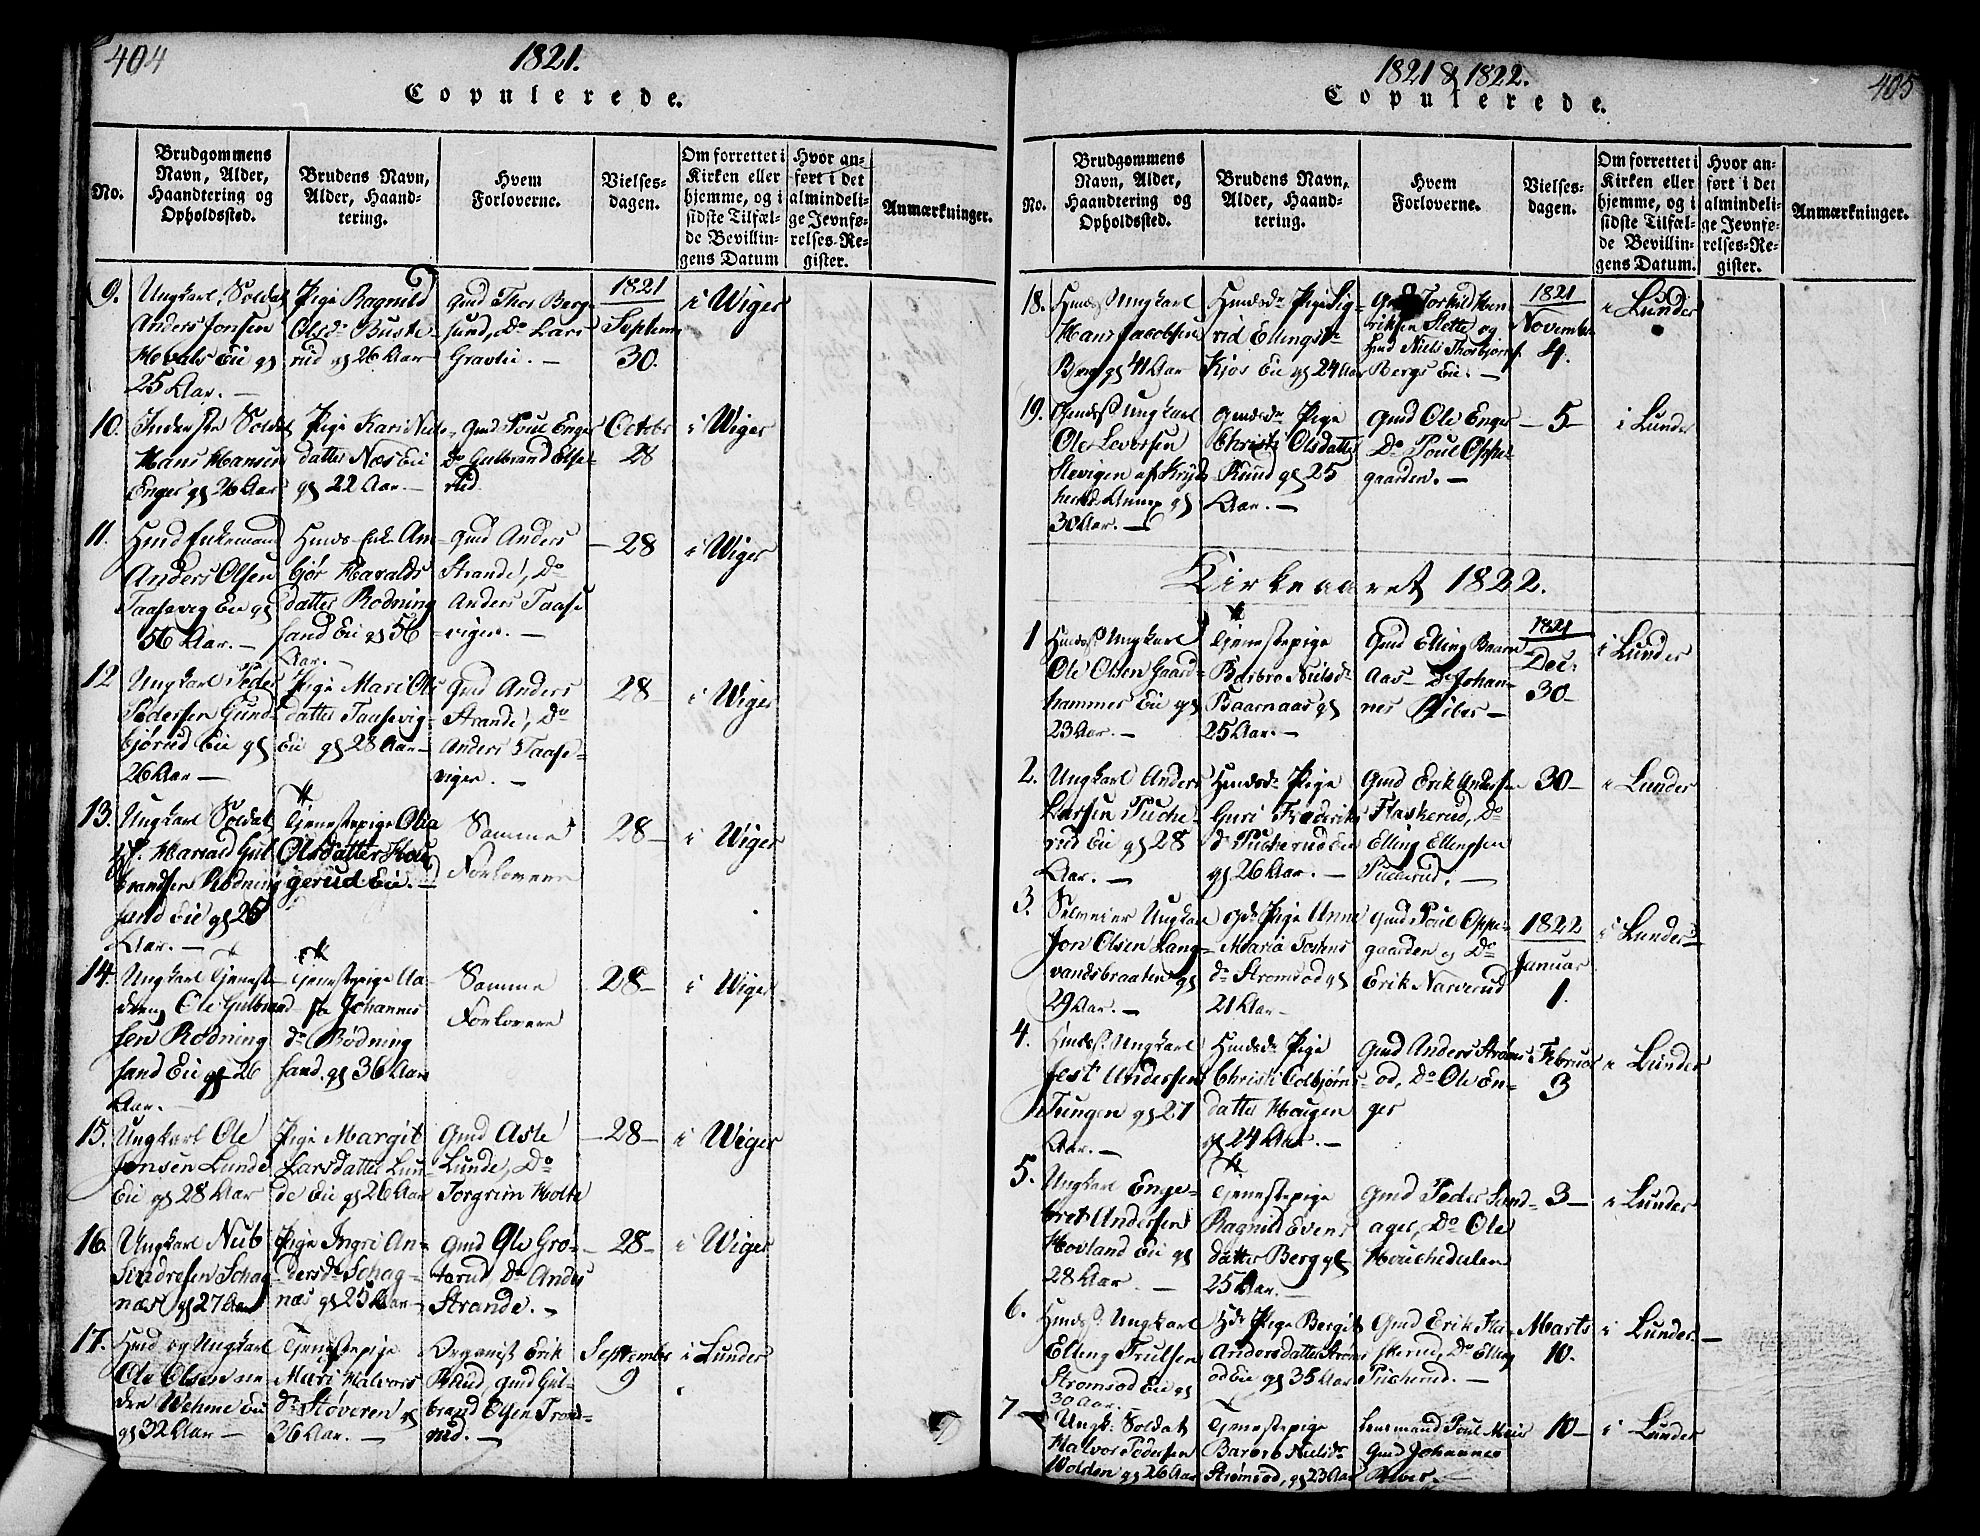 404
1821.
Copulerede.
No.
Brudgommens
Navn, Alder,
Haandtering og
Opholdssted.
Brudens Navn,
Alder, Haand-
tering.
Hvem
Forloverne.
Vielses-
dagen.
Om forrettet i
Kirken eller
hjemme, og i
sidste Tilfæl-
de Bevillin-
gens Datum
Hvor an-
ført i det
almindeli-
ge Jevnfø-
relses-Re-
gister.
Anmærkninger.
9.
Ungkarl, Soldat
Anders Jonsen
Hovals Eie gl
25 Aar. —
Pige Ragnild
Olsdr Buste-
rud gl 26 Aar
Gmd Thos Berg-
sund, Do Lars
Gravlie. —
1821
Septemr
30.
i Wiger
10.
Soldat
Hans Hansen
Enger gl 26 Aar
Pige Kari Niels-
datter Næs Eie
gl 22 Aar. —
Gmd Poul Enger
Do Gulbrand Else-
rud
Octobr
28
i Wiger
11.
Hmd Enkemand
Anders Olsen
Taasevig Eie gl
56 Aar. —
Hmds Enke Am-
bjør Haralds
datter Rodning
sand Eie gl 56
Aar. —
Gmd Anders
Strande, Do
Anders Taase
vigen. —
— 28
i Wiger
12
Ungkarl Peder
Pedersen Gund-
bjørud Eie gl
26 Aar —
Pige Mari Ols
datter Taasevig-
Eie gl 28 Aar —
Gmd Anders
Strande, Do
Anders Taase-
vigen. —
28 —
i Wiger
13.
Ungkarl Soldat
Harald Gul
brandsen Rodning
sand Eie gl 25
Aar. —
Tjenestepige Olia
Olsdatter Hou
gerud Eie. —
Samme
Forlovere
28 —
i Wiger
14.
Ungkarl Tjeneste
dreng Ole Gulbrand
sen Rodning
sand Eie gl 26
Aar. —
Tjenestepige Aa-
se Johannes
dr Rodning
sand. gl 36 Aar
Samme
Forlovere
28 —
i Wiger
15.
Ungkarl Ole
Jonsen Lunde
Eie gl 28 Aar
Pige Margit
Larsdatter Lun-
de Eie gl 26 Aar
Gmd Asle
Lunde, Do
Torgrim Holte
— 28 —
i Wiger
16.
Ungkarl Nub
Sindresen Schag
næs gl 27 Aar
Pige Ingri An-
dersdr Schag-
næs gl 25 Aar —
Gmd Ole Gro-
terud Do Anders
Strande. —
— 28 —
i Wiger
17.
Hmd og Ungkarl
Ole Olsen
Wehme Eie
gl 32 Aar —
Tjenestepige
Mari Halvors
dr Støveren gl
36 Aar. —
Organist Erik
Ruud, gmd Gul-
brand Olsen Trond-
rud. —
Septembr
9
i Lunder
405
1821 & 1822.
Copulerede.
No.
Brudgommens
Navn, Alder,
Haandtering og
Opholdssted.
Brudens Navn,
Alder, Haand-
tering.
Hvem
Forloverne.
Vielses-
dagen.
Om forrettet i
Kirken eller
hjemme, og i
sidste Tilfæl-
de Bevillin-
gens Datum.
Hvor an-
ført i det
almindeli-
ge Jevnfø-
relses-Re-
gister.
Anmærkninger.
18.
Hmdss Ungkarl
Hans Jacobsen
Berg gl 41 Aar
Hmdsdr Pige Sig-
rid Ellingsdr
Kjos Eie gl 24 Aar
Gmd Torkild Hen
riksen Slette og
Hmd Niels Thorbjørns.
Bergs Eie. —
1821
Novembr
4.
i Lunder
19.
Gmdss Ungkarl
Ole Leversen
Slevigen af Kryds
herred gl
30 Aar. —
Gmdsdr Pige
Christi Olsdatter
Ruud gl 25
Aar. —
Gmd Ole Enger
Do Poul Oppe-
gaarden. —
— 5 —
i Lunder
Kirkeaaret 1822.
1
Hmdss Ungkarl
Ole Olsen Gaard-
hammer Eie gl
23 Aar. —
Tjenestepige
Barbro Nielsdr
Baarnaas gl
25 Aar. —
Gmd Elling Baarn
aas — Do Johan-
nes Riber —
1821
Dec:
30 —
i Lunder
2.
Ungkarl Anders
Larsen Puche-
rud Eie gl 28
Aar. —
Hmdsdr Pige
Guri Frederiks
dr Pucherud Eie
gl 26 Aar. —
Gmd Erik Andersen
Flaskerud, Do
Elling Ellingsen
Pucherud. —
30 —
i Lunder
3.
Selveier Ungkarl
Jon Olsen Lang-
vandsbraaten gl
29 Aar. —
Pige Anne
Maria Tostens
dr Strømsod gl
21 Aar —
Gmd Poul Oppe-
gaarden og Do
Erik Narverud
1822
Januar
1.
i Lunder
4.
Hmdss. Ungkarl
Jest Andersen
Tungen gl 27
Aar. —
Hmdsdr Pige
Christi Colbjørns-
datter Haugen
gl 24 Aar. —
Gmd Anders Strøms-
od, Do Ole En-
ger
Februar
3
i Lunder
5.
Ungkarl Enge-
bret Andersen
Hovland Eie gl
28 Aar. —
Tjenestepige
Ragnild Evens
datter Berg gl
25 Aar. —
Gmd Peder Sand-
ager, Do Ole
3 —
i Lunder
6.
Hmdss. Ungkarl
Elling Trulsen
Strømsod Eie gl
30 Aar. —
Pige Bergit
Andersdatter Strøms
od Eie gl 35 Aar
Gmd Erik Fla-
skerud, Do Elling
Pucherud. —
Marts
10.
i Lunder —
7
Ungk. Soldat
Halvor Pedersen
Wolden gl 26 Aar
Tjenestepige
Barbro Nielsdr
Strømsod, gl 23 Aar
Lensmand Poul Meier
Gmd Johannes
Riber. —
10 —
i Lunder